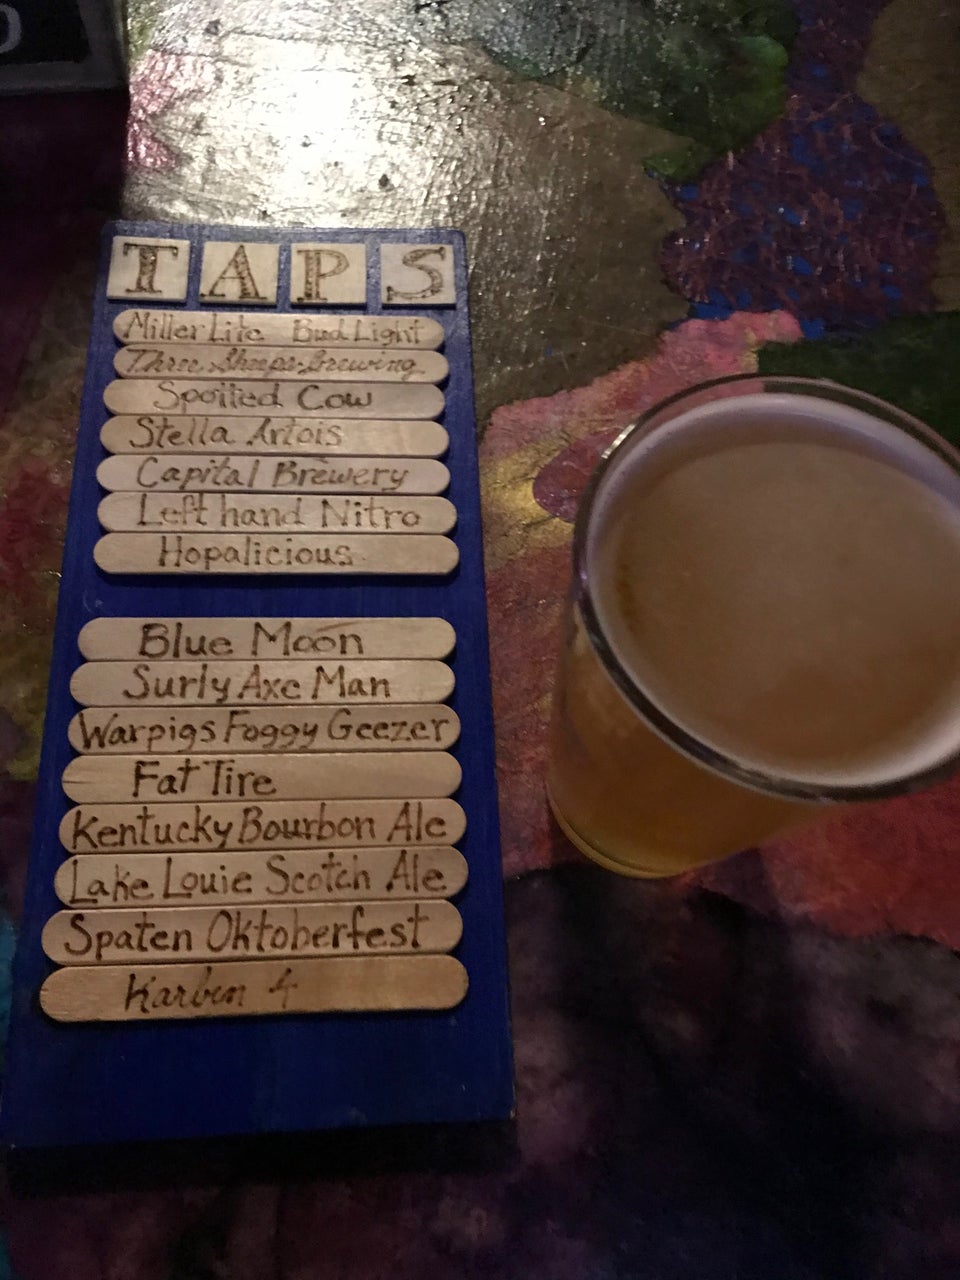 TAPS
Miller Lite Bud Light
Three Sheeps Brewing
Spotted Cow
Stella Artois
Capital Brewery
Left hand Nitro
Hopalicious
Blue Moon
Surly Axe Man
Warpigs Foggy Geezer
Fat Tire
Kentucky Bourbon Ale
Lake Louie Scotch Ale
Spaten Oktoberfest
Karben 4